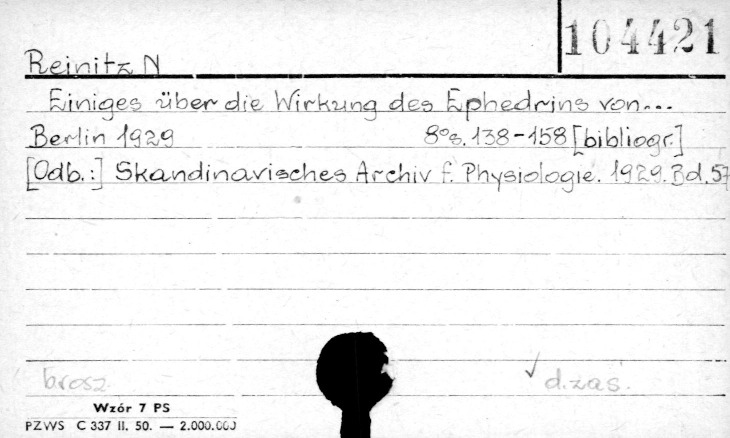 104421
Reinitz N
Einiges über die Wirkung des Ephedrins von...
Berlin 1929 8° s. 138-158 [bibliogr.]
[Odb.:] Skandinavisches Archiv f. Physiologie. 1929. Bd. 57
brosz d. zas.
Wzór 7 PS
PZWS C 337 II. 50. — 2.000.000